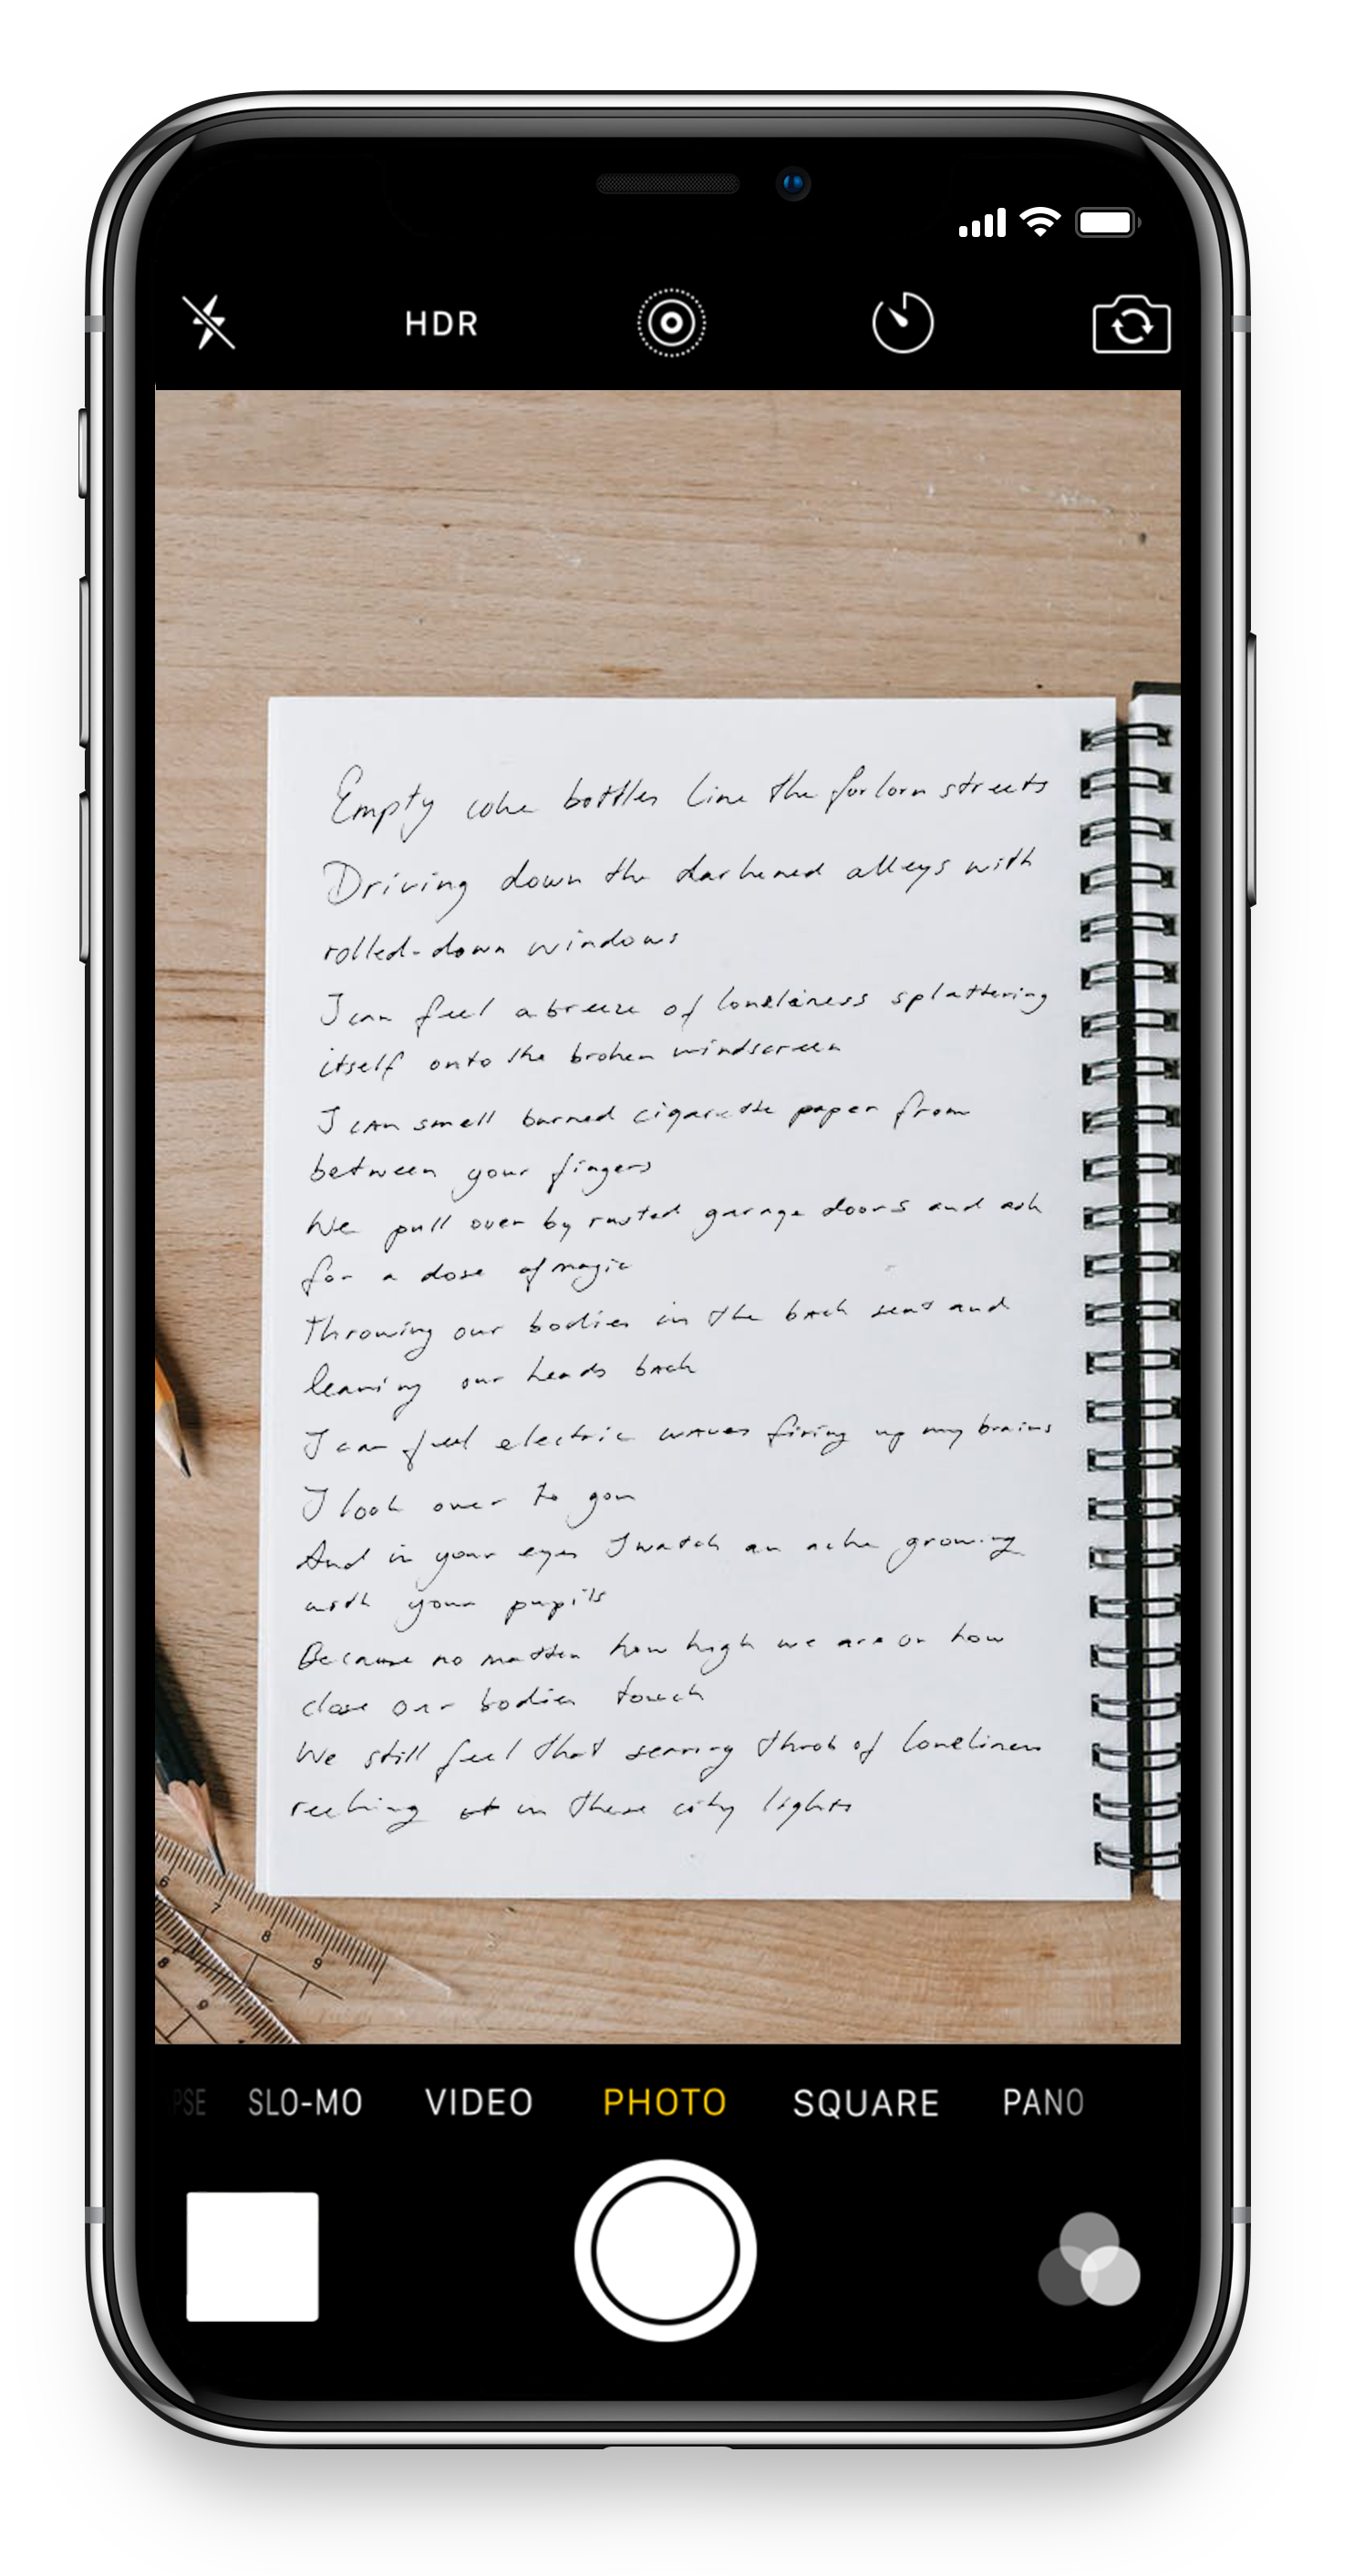 HDR
Empty coke bottles line the forlorn streets
Driving down the darkened alleys with
rolled-down windows
I can feel a breeze of loneliness splattering
itself onto the broken windscreen
I can smell burned cigarette paper from
between your fingers
We pull over by rusted garage doors and ask
for a dose of magic
Throwing our bodies in the back seat and
leaning our heads back
I can feel electric waves firing up my brains
I look over to you
And in your eyes I watch an ache growing
with your pupils
Because no matter how high we are or how
close our bodies touch
We still feel that searing throb of loneliness
in these city lights
6
7
8
9
8
9
PSE SLO-MO VIDEO PHOTO SQUARE PANO